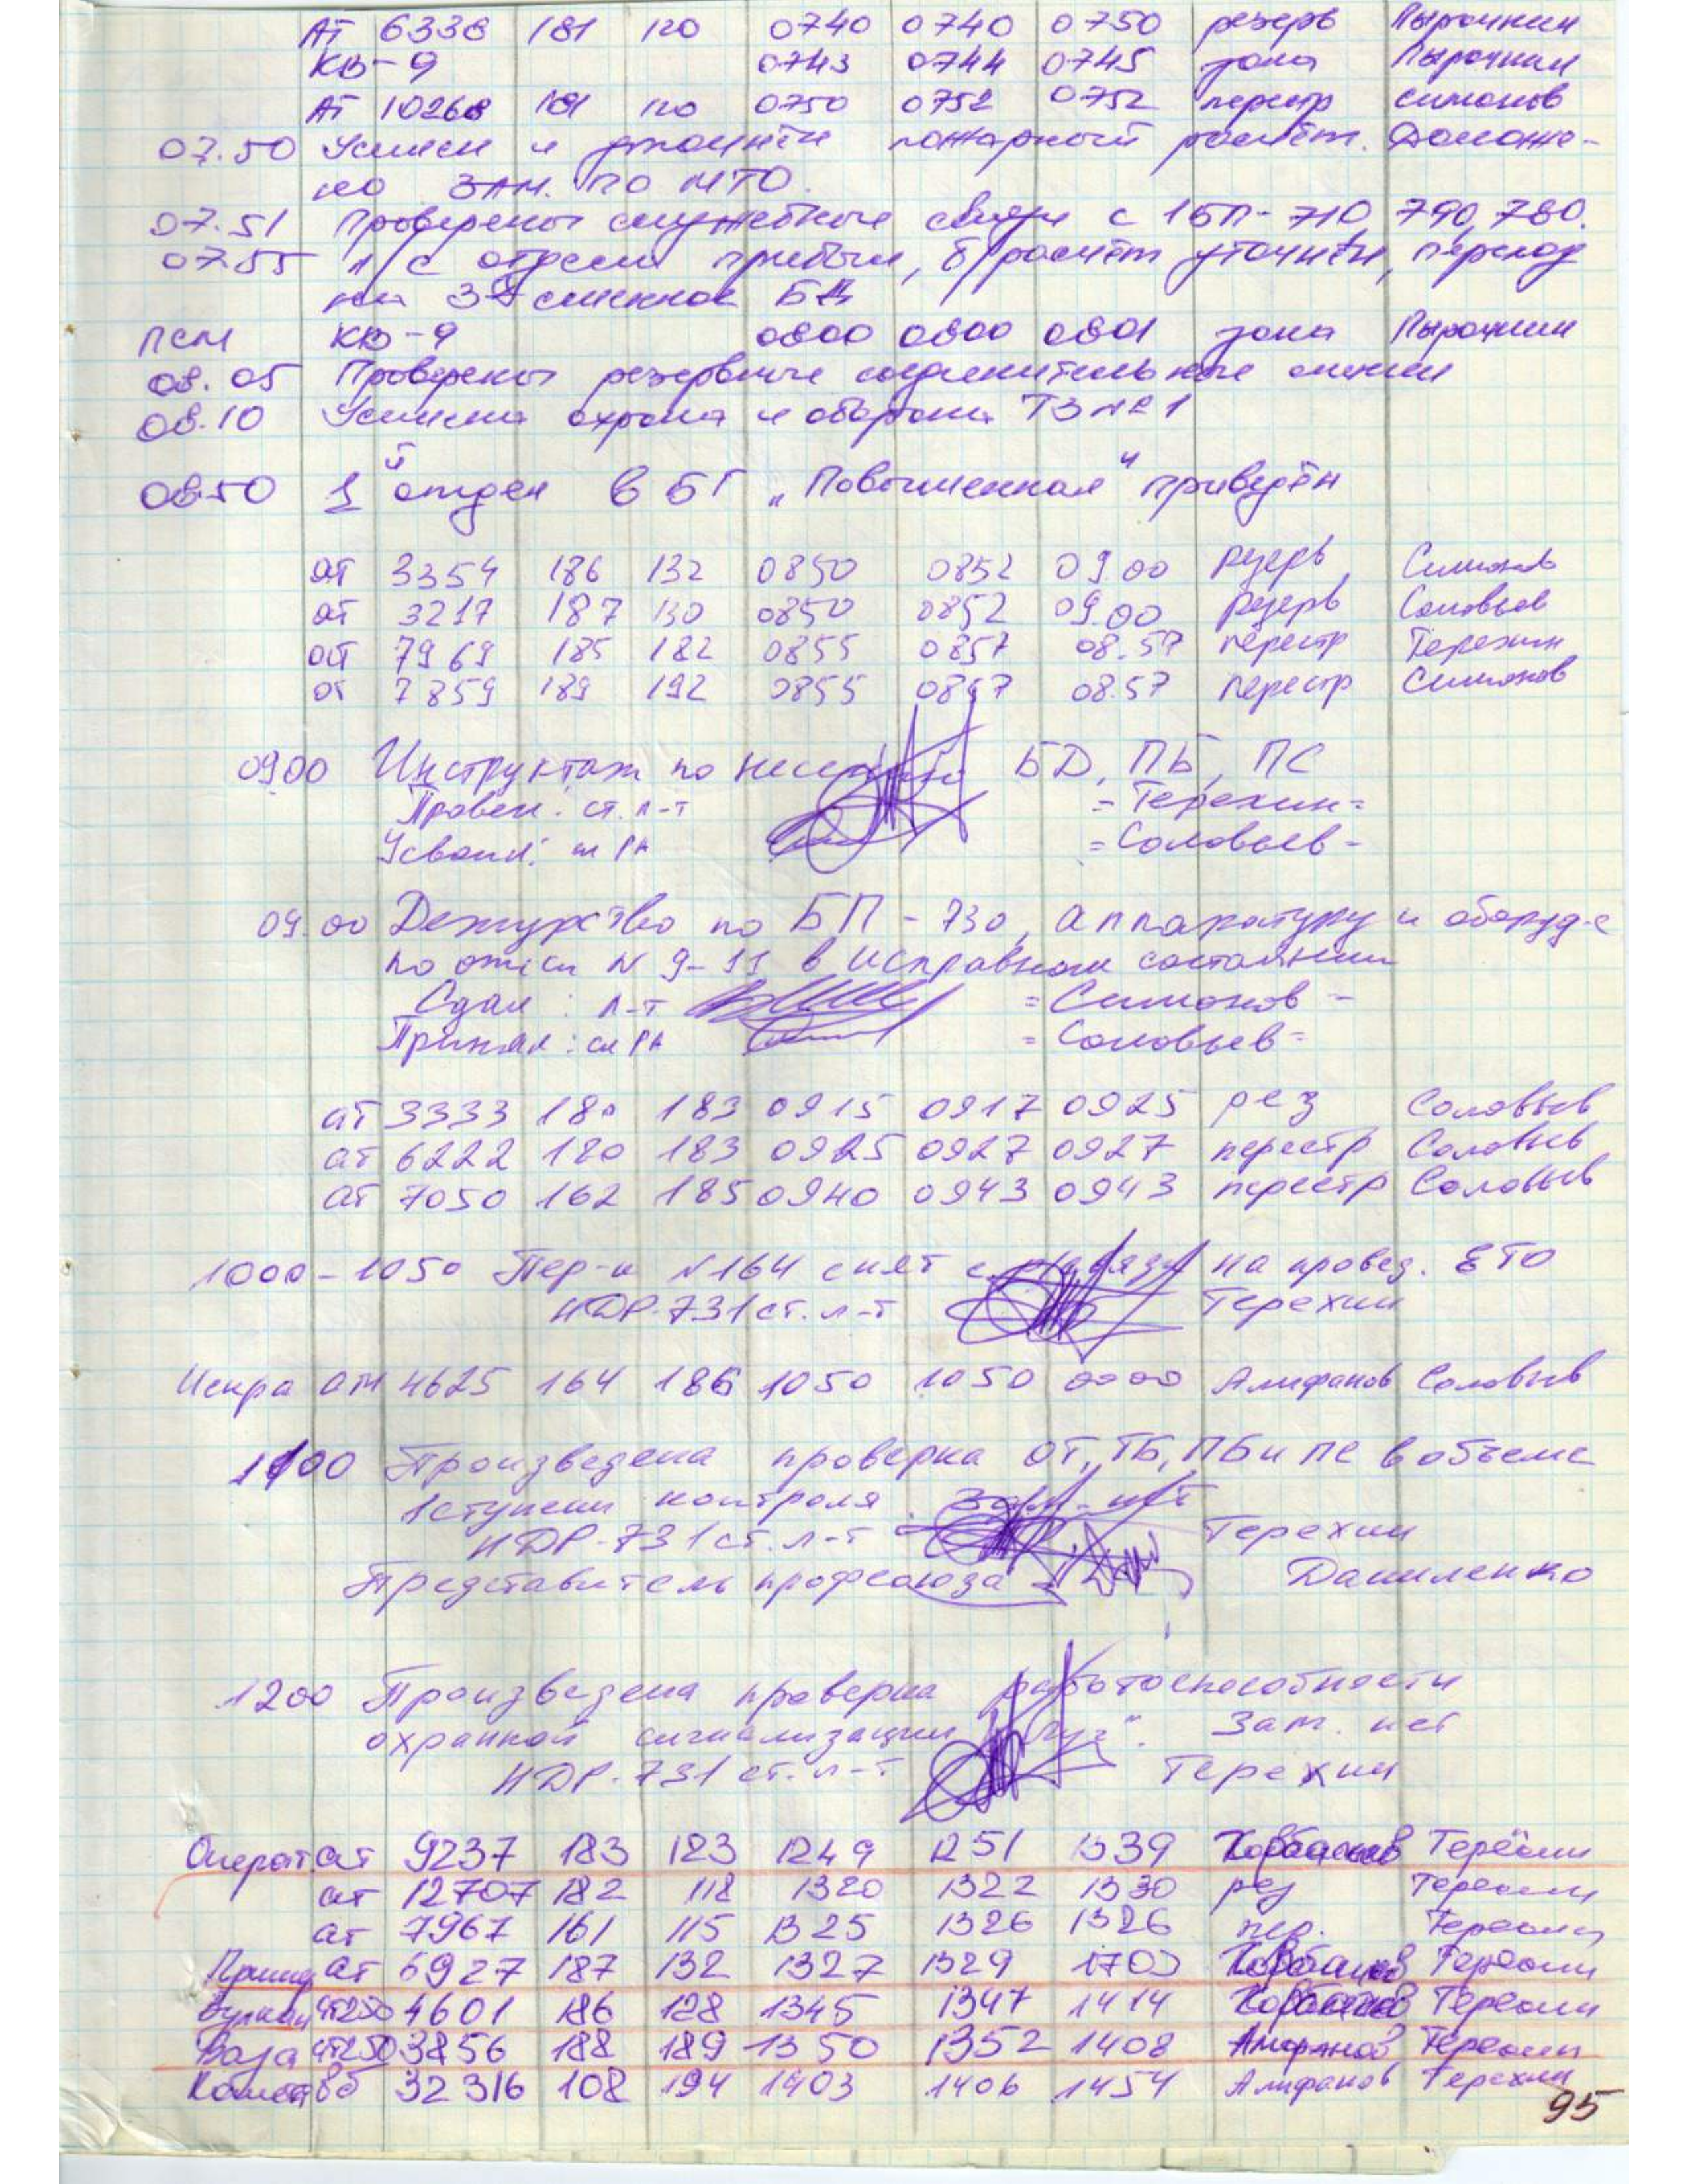 АТ 6338 181 120 0740 0740 0750 резерв Пырочкин
КВ-9 0743 0744 0745 зона Пырочкин
АТ 10268 181 120 0750 0752 0752 перестр Симонов
07.50 Усилен и уточнён пожарный расчёт. Доложе-
но ЗАМ. ПО МТО.
07.51 Проверены служебные связи с 1БП-710, 790, 780.
07.55 л/с отделен прибыл, б/расчёт уточнён, переход
на 3х сменное БД
ПСМ КВ-9 0800 0800 0801 зона Пырочкин
08.05 Проверены резервные соединительные линии
08.10 Усилена охрана и оборона ТЗ №1
0850 1й отдел в БГ „Повышенная" приведён
ат 3354 186 132 0850 0852 09.00 резерв Симонов
ат 3217 187 130 0850 0852 09.00 резерв Соловьев
ат 7969 185 182 0855 0857 08.57 перестр Терехин
ат 7859 189 192 0855 0857 08.57 перестр Симонов
0900 Инструктаж по несению БД, ПБ, ПС
Провел: ст. л-т = Терехин =
Усвоил: = Соловьев -
09.00 Дежурство по БП-730, аппаратуру и оборуд-е
по описи N 9-11 в исправном состоянии
Сдал: л-т = Симонов -
Принял: = Соловьев =
ат 3333 180 183 0915 0917 0925 рез Соловьев
ат 6222 180 183 0925 0927 0927 перестр Соловьев
ат 7050 162 185 0940 0943 0943 перестр Соловьев
1000-1050 Пер-к N164 снят с связи на провед. ЕТО
НДР-731 ст. л-т Терехин
Искра ам 4625 164 186 1050 1050 0000 Алифанов Соловьев
1100 Произведена проверка ОТ, ТБ, ПБ и ПС в объеме
1 ступени контроля. Зам. нет
НДР-731 ст. л-т Терехин
Представитель профсоюза Даниленко
1200 Произведена проверка работоспособности
охранной сигнализации „Луч". Зам. нет
НДР-731 ст. л-т Терехин
Операт ат 9237 183 123 1249 1251 1339 Терехин
ат 12707 182 118 1320 1322 1330 рез Терехин
ат 7967 161 115 1325 1326 1326 пер. Терехин
ат 6927 187 132 1327 1329 1703 Терехин
Вулкан ат250 4601 186 128 1345 1347 1414 Терехин
Ваза ат250 3856 188 189 1350 1352 1408 Алифанов Терехин
Комета вб 32316 108 194 1403 1406 1454 Алифанов Терехин
95